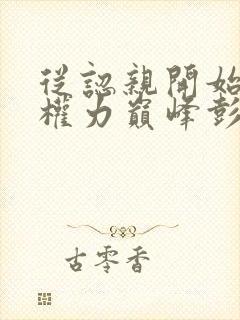 從認親開始
權力巔峰彭
古零香